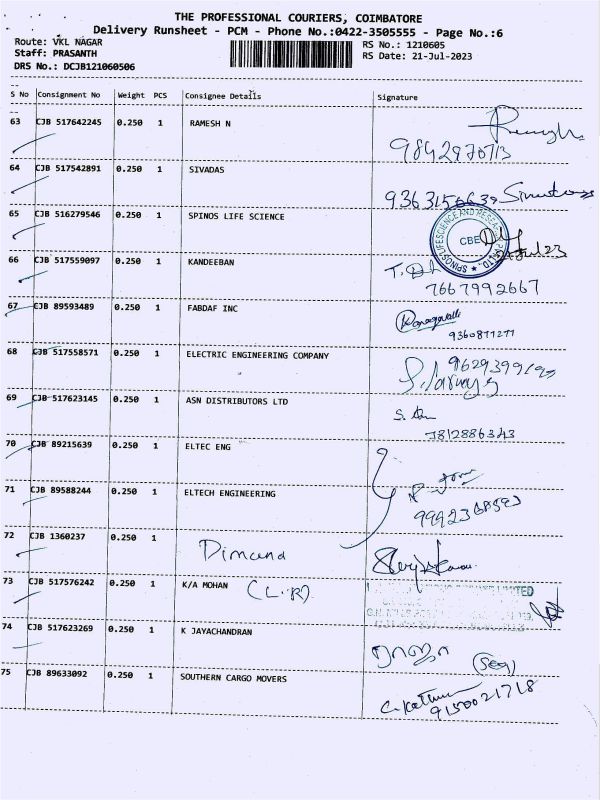 THE PROFESSIONAL COURIERS, COIMBATORE
Delivery Runsheet - PCM - Phone No.:0422-3505555 - Page No.:6
Route: VKL NAGAR
RS No.: 1210605
Staff: PRASANTH
RS Date: 21-Jul-2023
DRS No.: DCJB121060506
S No Consignment No Weight PCS Consignee Details Signature
63 CJB 517642245 0.250 1 RAMESH N
9842970713
64 CJB 517542891 0.250 1 SIVADAS
65 CJB 516279546 0.250 1 SPINOS LIFE SCIENCE
CBE
66 CJB 517559097 0.250 1 KANDEEBAN
7667992667
67 CJB 89593489 0.250 1 FABDAF INC
9360871271
68 CJB 517558571 0.250 1 ELECTRIC ENGINEERING COMPANY
69 CJB 517623145 0.250 1 ASN DISTRIBUTORS LTD
7812886343
70 CJB 89215639 0.250 1 ELTEC ENG
71 CJB 89588244 0.250 1 ELTECH ENGINEERING
72 CJB 1360237 0.250 1
73 CJB 517576242 0.250 1 K/A MOHAN (L.R)
74 CJB 517623269 0.250 1 K JAYACHANDRAN
ராஜா
75 CJB 89633092 0.250 1 SOUTHERN CARGO MOVERS
9150021718